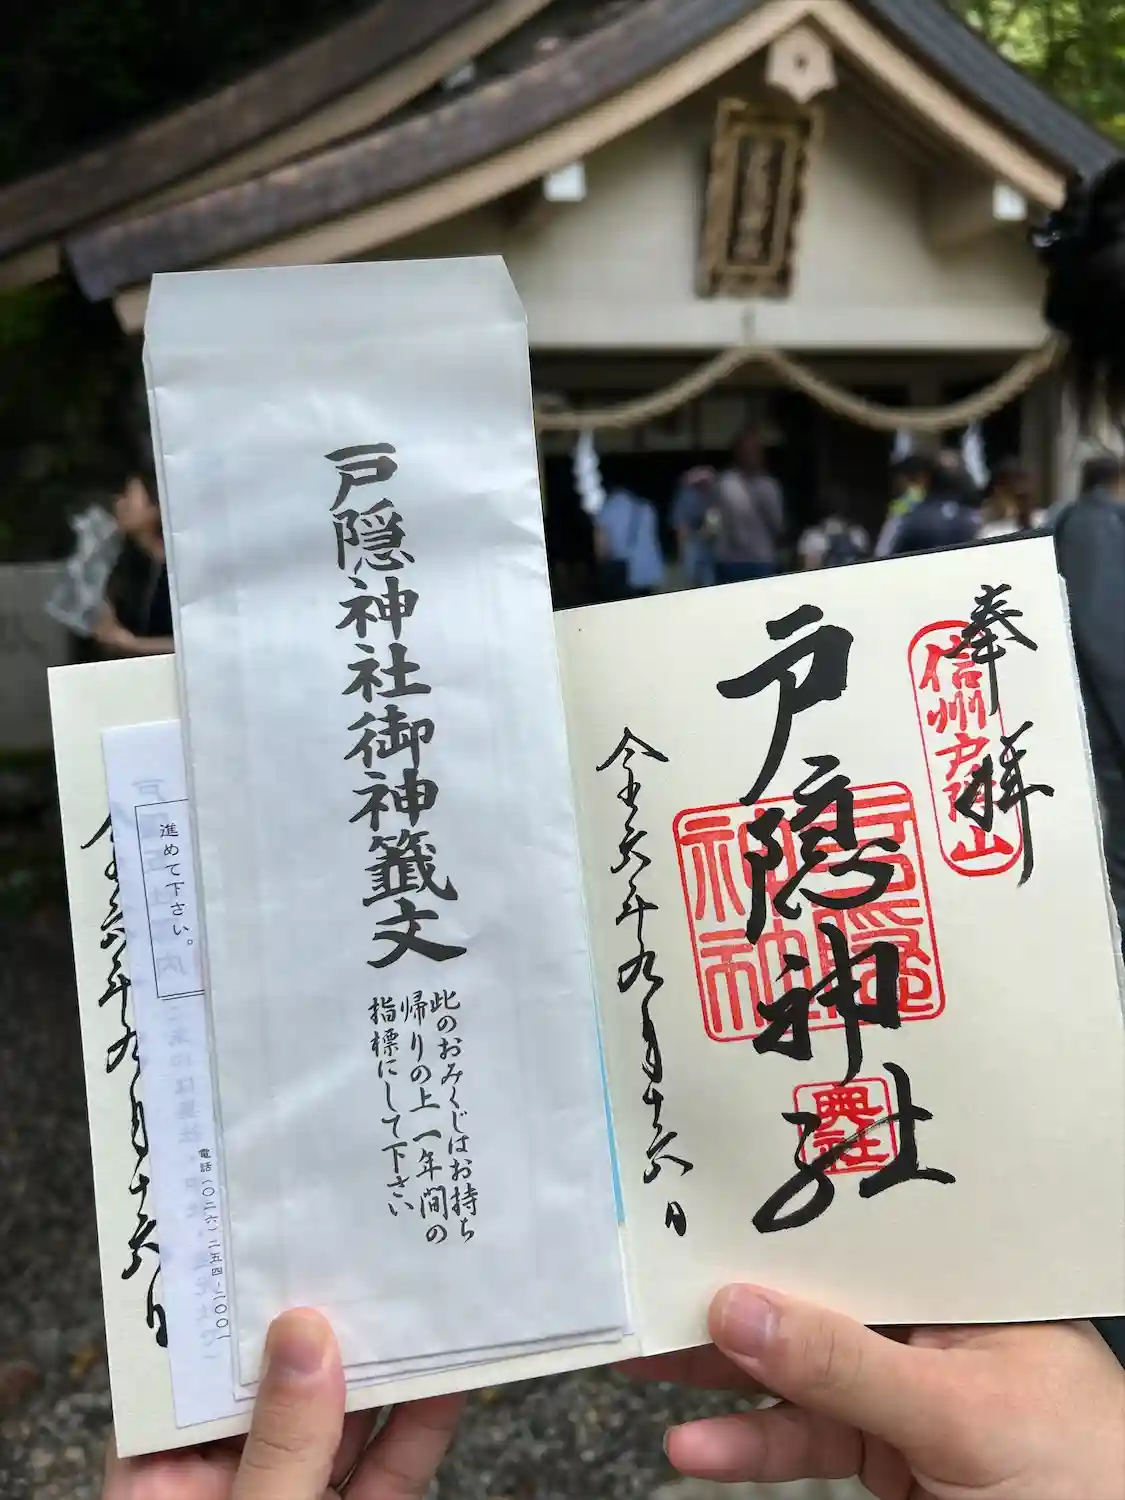 奉拝
信州戸隠山
戸隠神社
戸隠
神社
奥社
令和六年九月十六日
戸隠神社御神籤文
此のおみくじはお持ち
帰りの上一年間の
指標にして下さい
進めて下さい。
電話(〇二六)二五四-二〇〇一
令和六年九月十六日